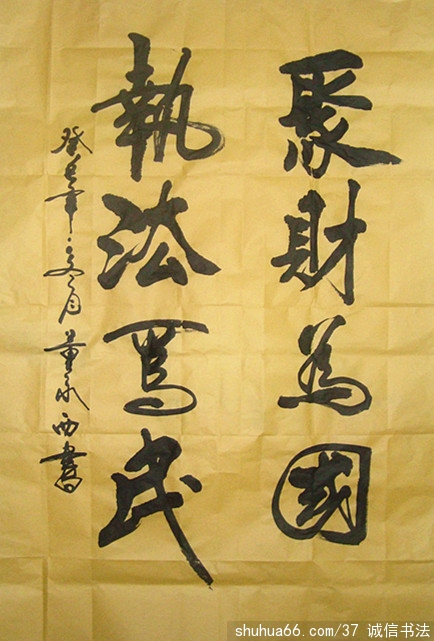 聚財為國
執法為民
癸 年 月 董永西書
shuhua66.com/37 诚信书法